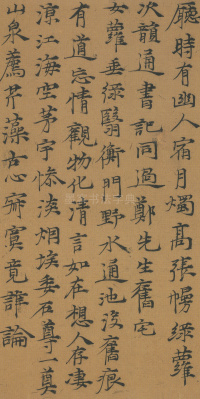 廳時有幽人宿月燭高張幌綠蘿
次韻通書記同過鄭先生舊宅
女蘿垂綠翳衡門野水通池沒舊痕
有道忘情觀物化清言如在想人存凄
涼江海空茅宇慘淡烟埃委石尊一奠
山泉薦芹藻古心寂寞竟誰論